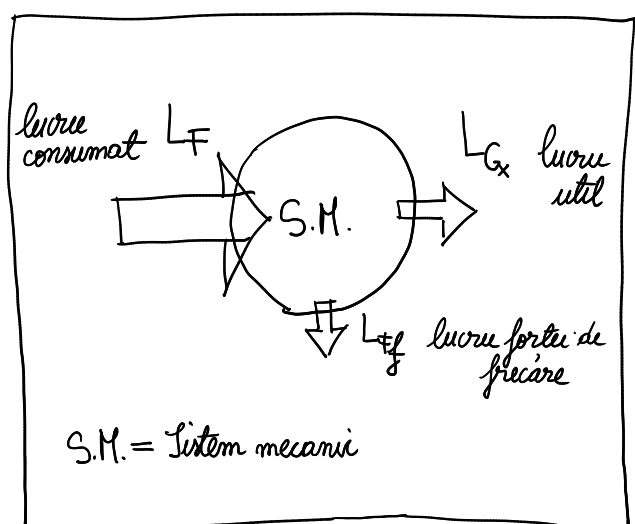 lucru
consumat L_F
S.M.
L_Gx lucru
util
L_Ff lucru forței de
frecare
S.M. = Sistem mecanic